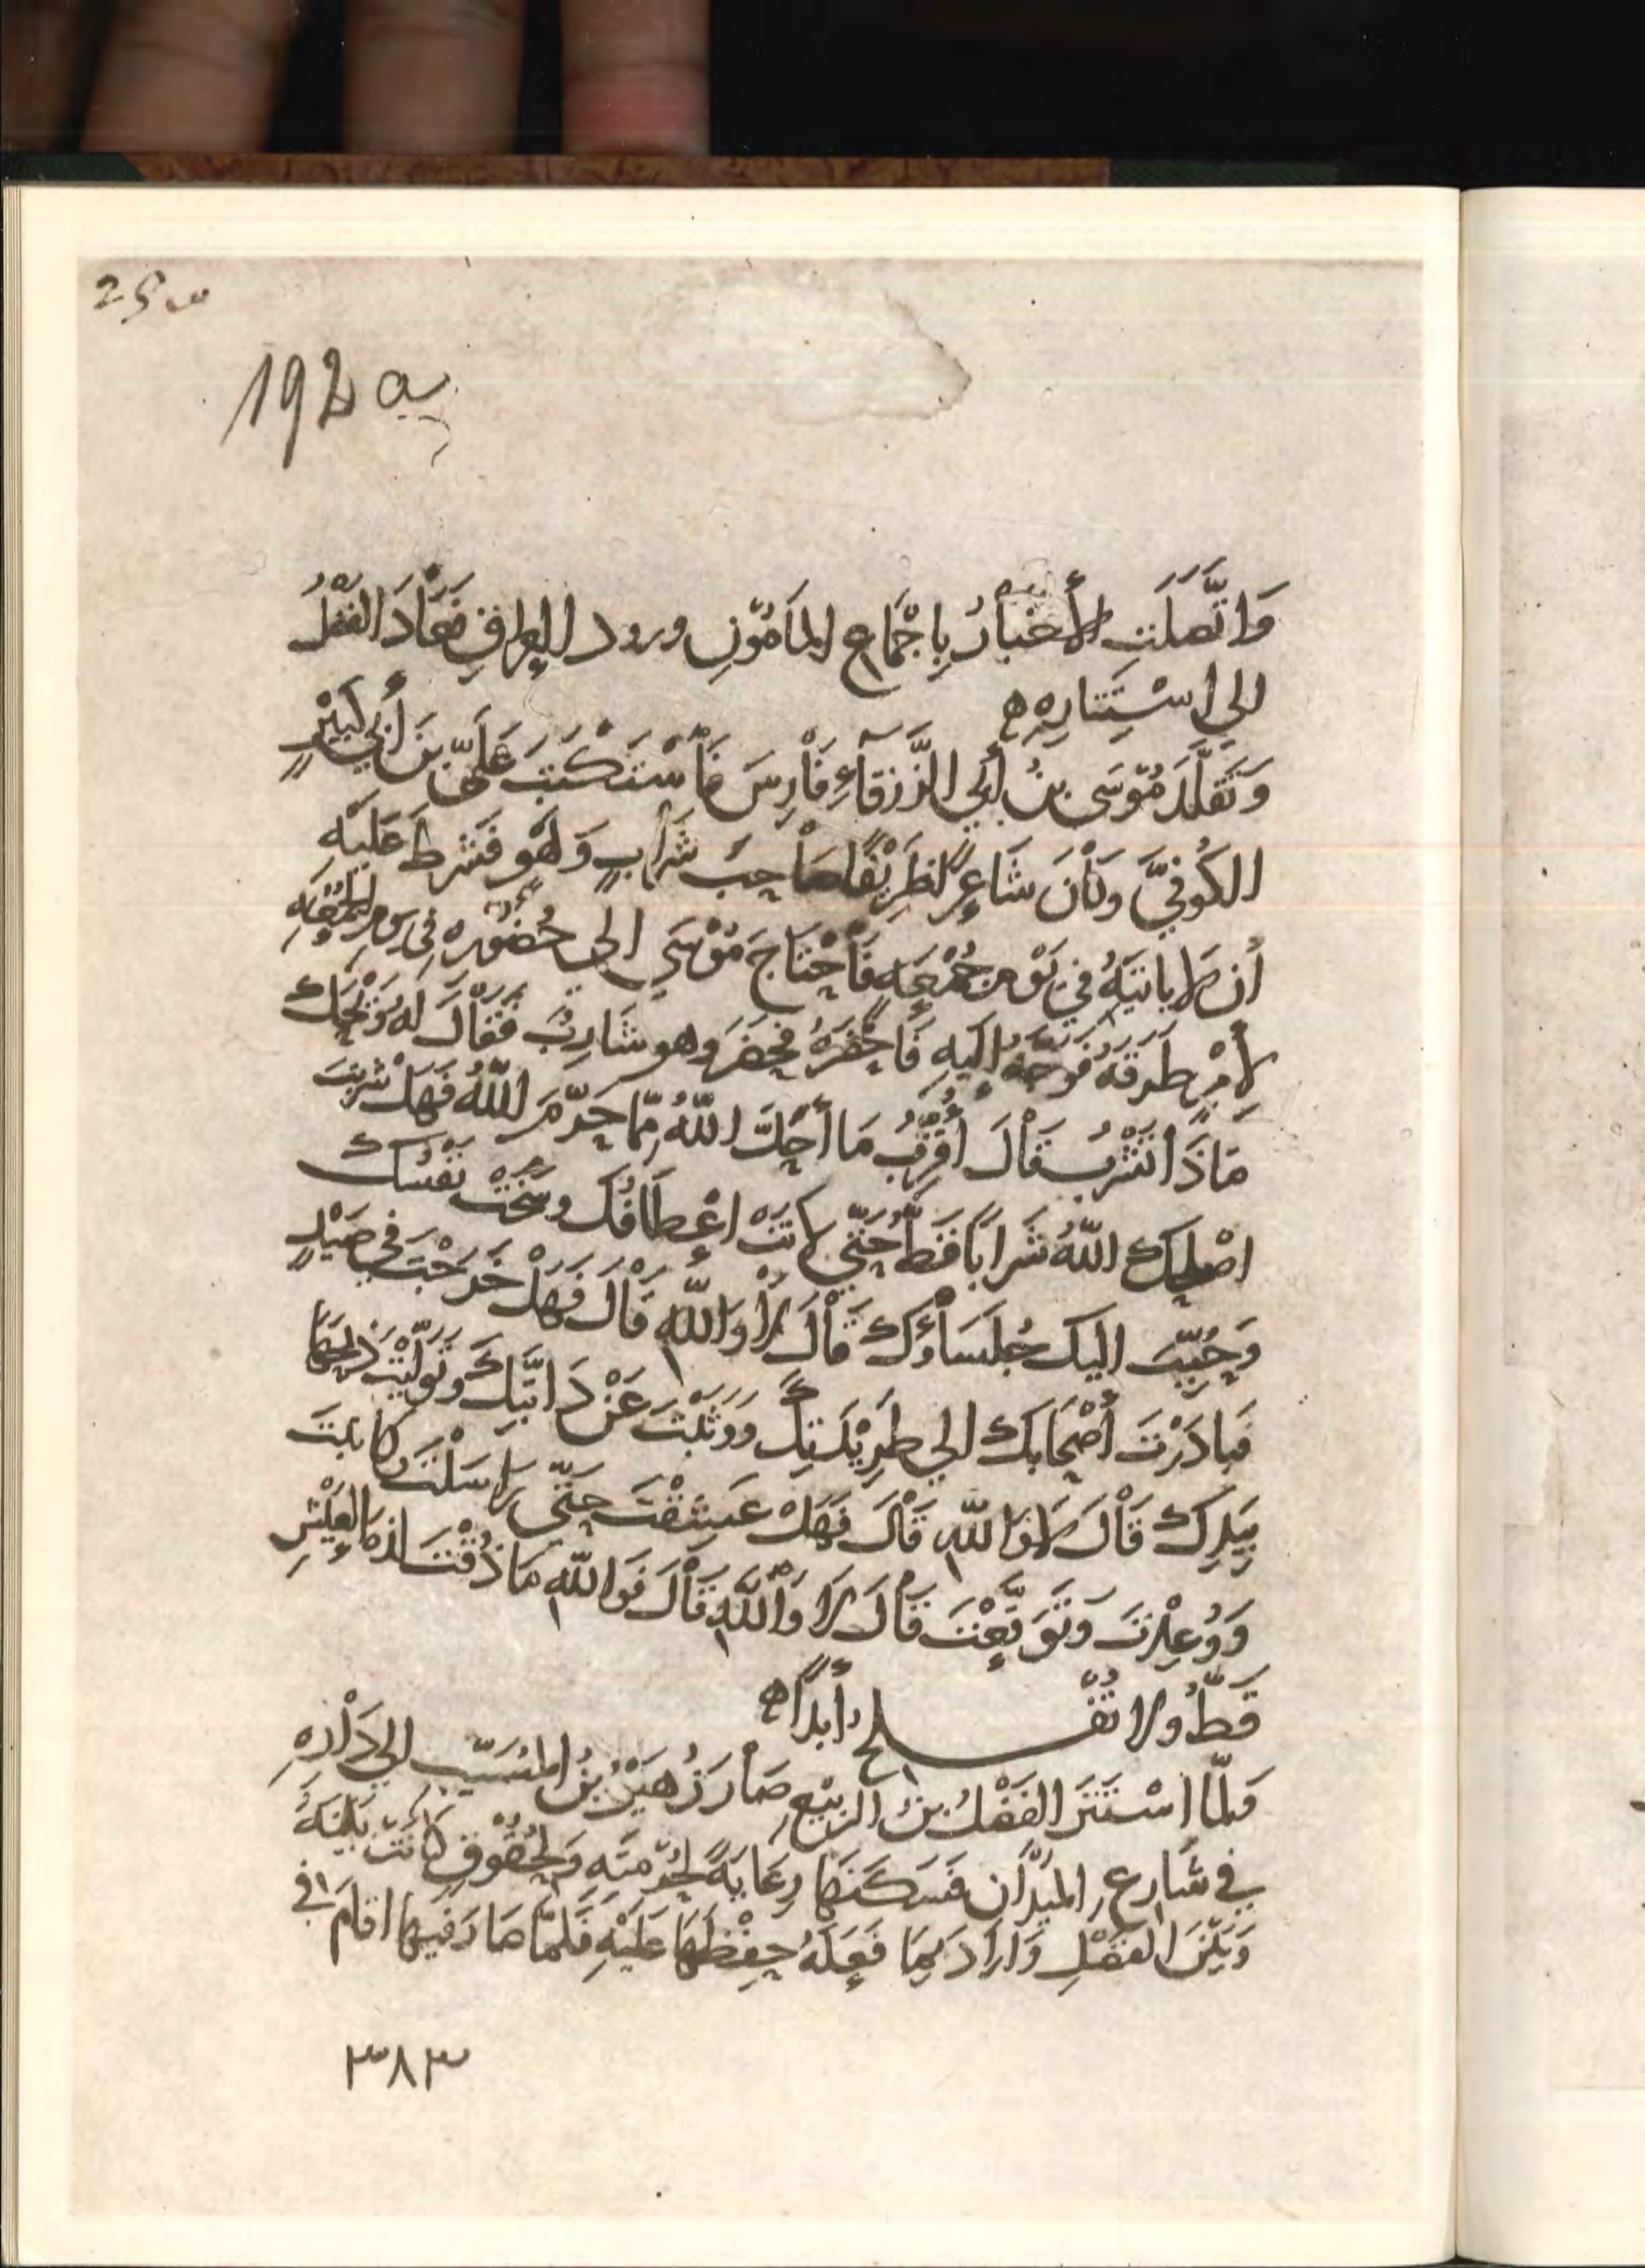 192 a
وَاتَّصَلَتِ الأَخْبَارُ بِاجْمَاعِ المَأمُوْنِ ورود العِراقِ فَعَادَ الفَضْلُ
الي اسْتِتَارِهِ ه
وَتَقَلَّدَ مُوْسَى بنُ أبي الزَّرْقَآءِ فَأرِسَ فَأسْتَكْتَبَ عَلَيّ بن أَبي كَبِيْرٍ
الكُوفيَّ وَكَأنَ شَاعِرًا ظَرِيْفًا صَاحِبَ شَرَابٍ وَلَهْوٍ فَشرطَ عَلَيْهِ
أن لا يَاتيَهُ في يَوْمِ جُمْعَه فَأحْتَاجَ مُوْسَي الي حُضُوْره في يَومِ الجُمُعَهِ
لأمْرٍ طَرَقَهُ فَوَجّهَ اليه فَأحْضَرَهُ فحَضَرَ وهو شَارِبٌ فَقَالَ لَهُ وَيْحَكَ
مَاذَا تَشْرَبُ قَالَ اُفَرِّقُ مَا أحَلَّ اللّهُ مِمّا حَرّمَ اللّهُ فَهَلْ شَرِبْتَ
اصْلحك اللّهُ شَرابًا قَطُّ حَتَّي لانَتْ اعْطَافُكَ وسَخَتْ نَفْسُكَ
وَحُبِّبَ اليك جُلَسَاؤُكَ قَألَ لا وَاللّهِ قَالَ فَهَلْ خَرَجْتَ في صَيْدٍ
فَبادَرْتَ أصْحَابَكَ الي طَرِيْدَتِكَ وَوَثَبْتَ عَنْ دَابَّتِكَ وَتَوَلَّيْتَ ذَبْحَهَا
بِيَدِكَ قَألَ لا وَاللّهِ قَألَ فَهَلْ عَشِقْتَ حَتَّى رَاسَلْتَ وَكَاتبتَ
وَوُعِدْتَ وَتَوَقَّعْتَ قَألَ لا وَأللّهِ قَألَ فَوَاللّهِ مَا ذُقْتَ لذةَ العَيْشِ
قَطُّ ولا تُفْلح أبدًا ه
فَلمّا اسْتَتَرَ الفَضْلُ بن الربيْعِ صَأرَ زُهَيْرُ بْنُ المُسَيّب الي دَأرِهِ
في شَارِعِ المَيدَان فَسَكَنَهَا رِعَايةً لحُرْمتِه وَلحُقُوقٍ كَأنَتْ بَيْنَهُ
وَبَيْنَ الفَضْلِ وَارَادَ بِمَا فَعَلَهُ حِفْظَهَا عَلَيْهِ فَلَمّا صَارَ فيهَا اقَامَ في
٣٨٣